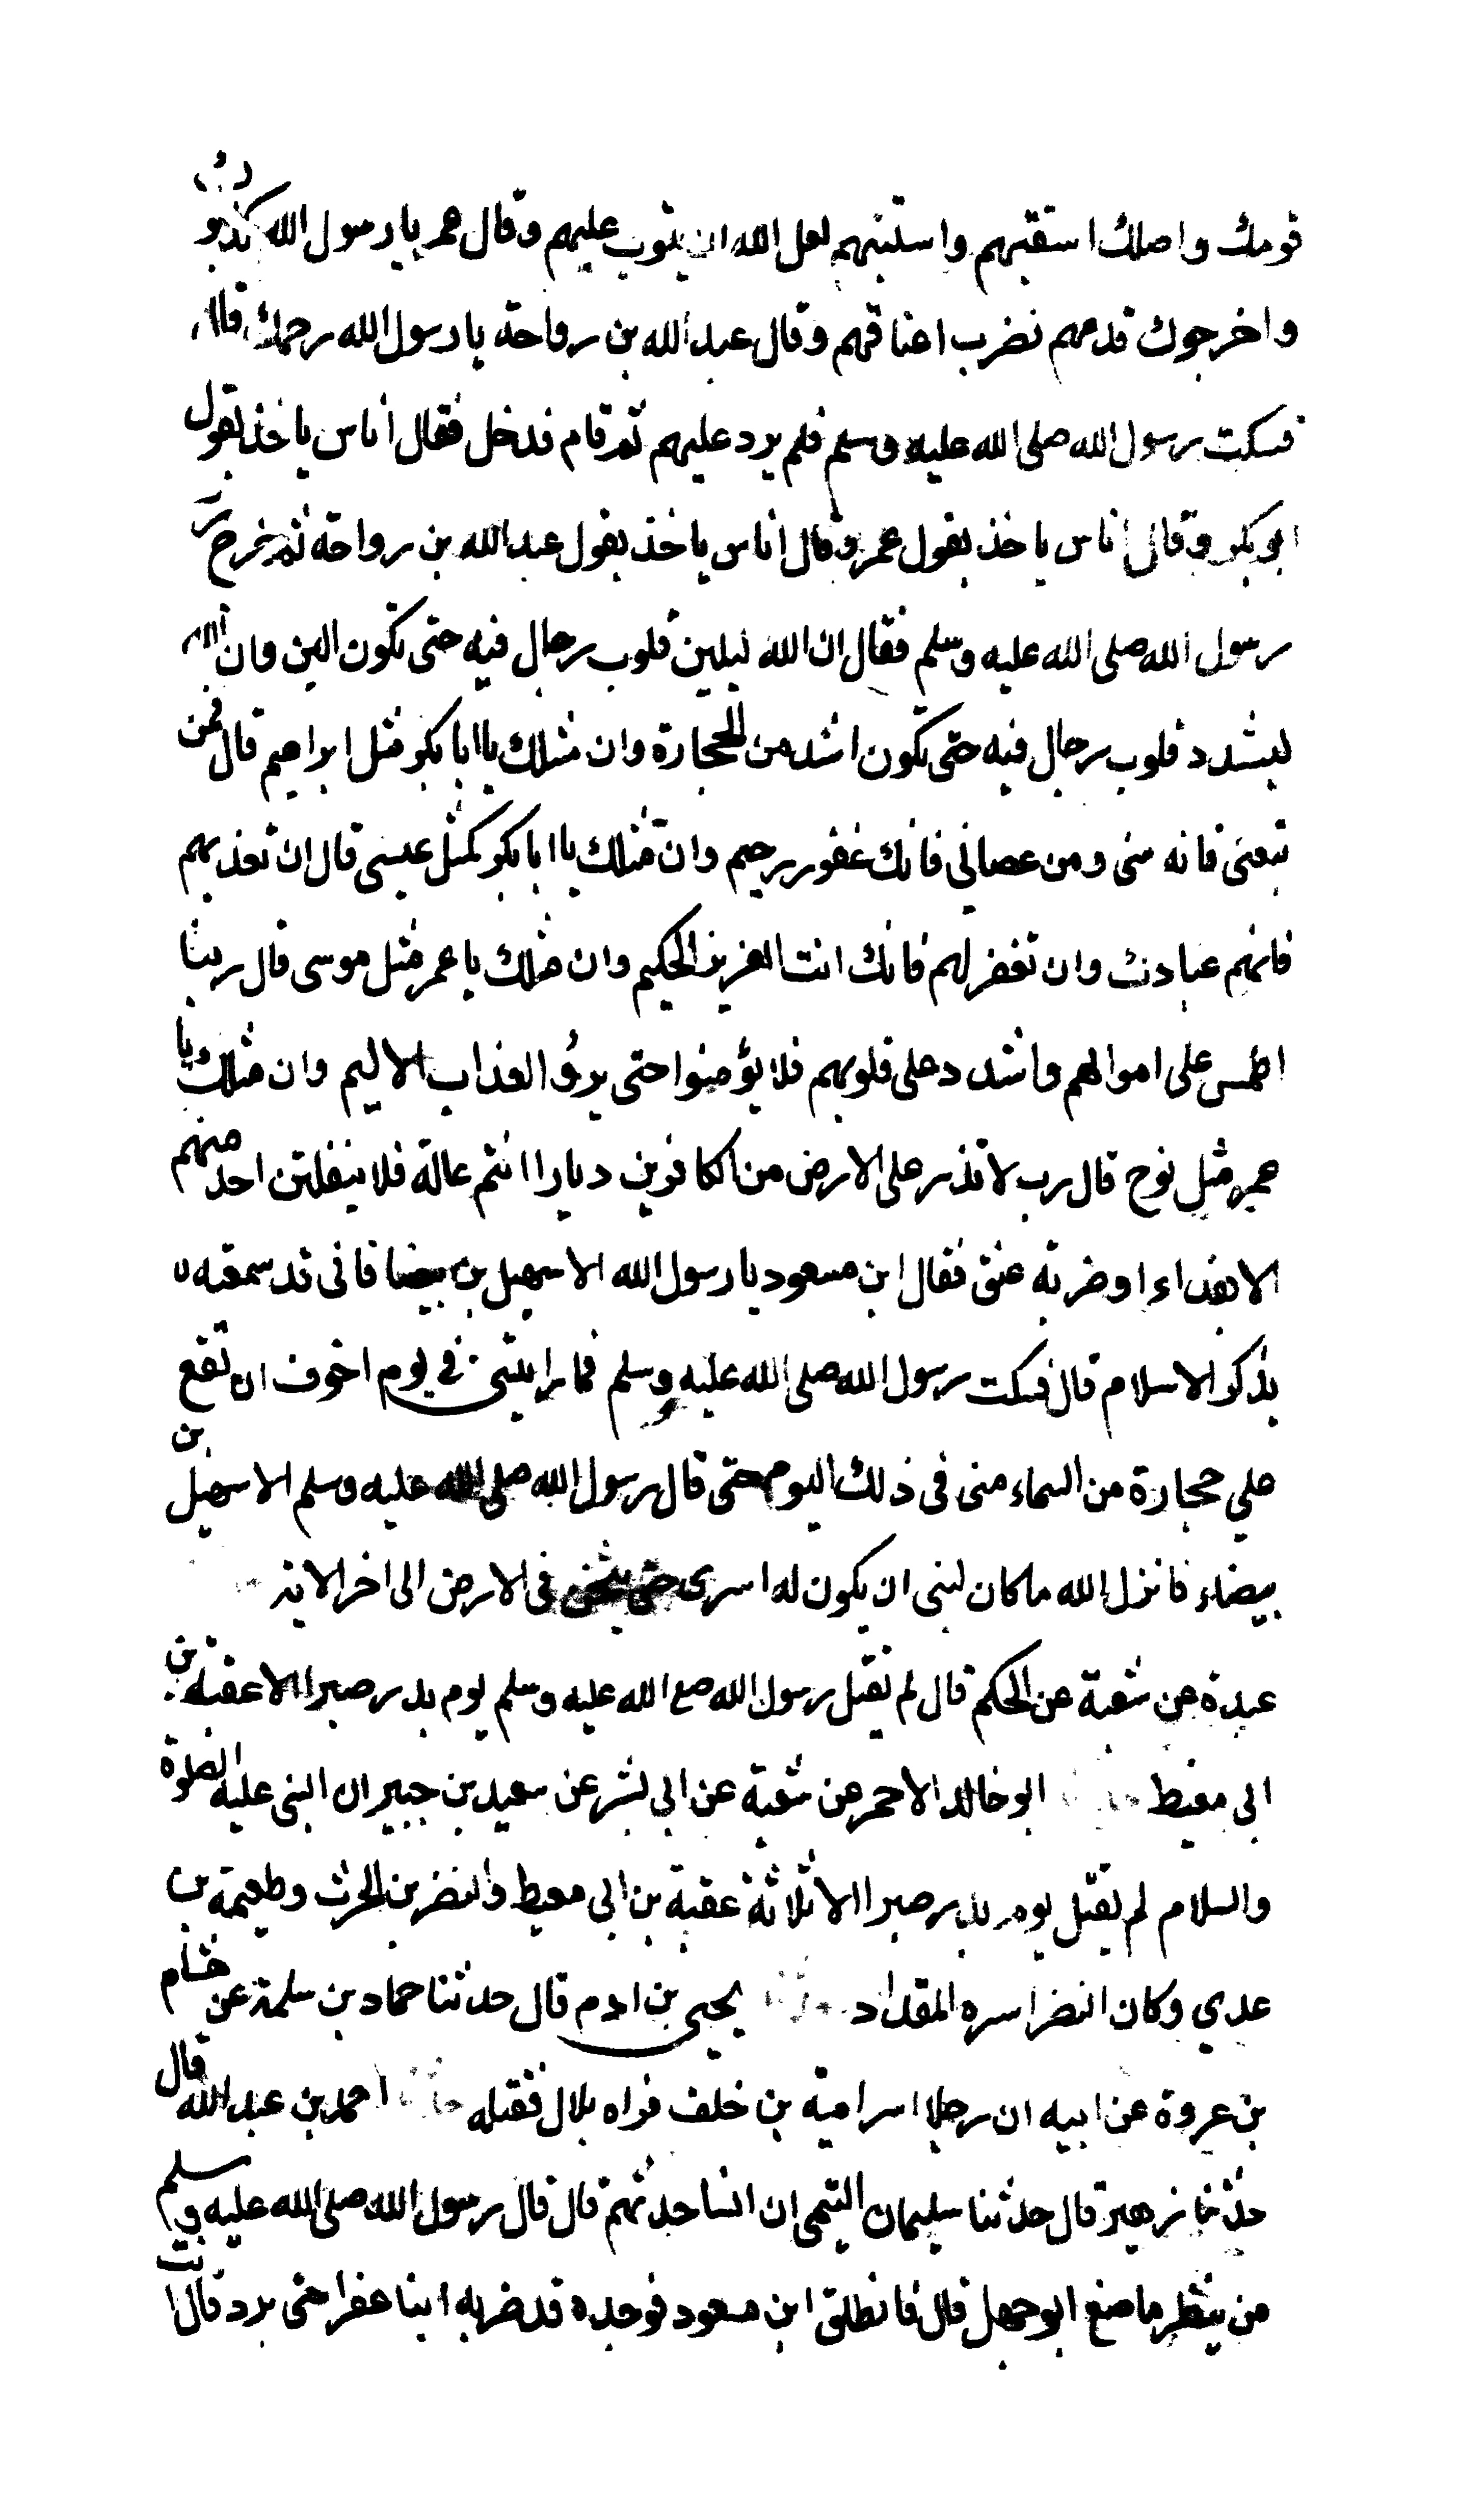 قومك واصلك استبقهم واستتبهم لعل الله ان يتوب عليهم وقال عمر يا رسول الله كذبوك
واخرجوك قدمهم نضرب اعناقهم وقال عبد الله بن رواحة يا رسول الله
فسكت رسول الله صلى الله عليه وسلم فلم يرد عليهم ثم قام فدخل فقال اناس ياخذ بقول
ابو بكر وقال اناس ياخذ بقول عمر وقال اناس ياخذ بقول عبد الله بن رواحة ثم خرج
رسول الله صلى الله عليه وسلم فقال ان الله ليلين قلوب رجال فيه حتى تكون الين وان الله
ليشدد قلوب رجال فيه حتى تكون اشد من الحجارة وان مثلك يا ابا بكر مثل ابراهيم قال فمن
تبعنى فانه منى ومن عصاني فانك غفور رحيم وان مثلك يا ابا بكر كمثل عيسى قال ان تعذبهم
فانهم عبادك وان تغفر لهم فانك انت العزيز الحكيم وان مثلك يا عمر مثل موسى قال ربنا
اطمس على اموالهم واشدد على قلوبهم فلا يؤمنوا حتى يرؤ العذاب الاليم وان مثلك يا
عمر مثل نوح قال رب لا تذر على الارض من الكافرين ديارا انتم عالة فلا ينفلتن احد منهم
الا بفداء او ضربة عنق فقال ابن مسعود يا رسول الله الا سهيل بن بيضا فانى قد سمعته
يذكر الاسلام قال فسكت رسول الله صلى الله عليه وسلم فما رايتنى فى يوم اخوف ان تقع
على حجارة من السماء منى فى ذلك اليوم حتى قال رسول الله صلى الله عليه وسلم الا سهيل بن
بيضاء فانزل الله ما كان لنبى ان يكون له اسرى حتى يثخن فى الارض الى اخر الاية
عبدة عن شعبة عن الحكم قال لم يقتل رسول الله صلع الله عليه وسلم يوم بدر صبرا الا عقبة بن
ابى معيط ابو خالد الاحمر عن شعبة عن ابى بشر عن سعيد بن جبير ان النبى عليه الصلوة
والسلام لم يقتل يوم بدر صبرا الا ثلاثة عقبة بن ابى معيط والنضر بن الحرث وطعيمة بن
عدي وكان النضر اسره المقداد يحيى بن ادم قال حدثنا حماد بن سلمة عن هشام
بن عروة عن ابيه ان رجلا اسر امية بن خلف فراه بلال فقتله احمد بن عبد الله قال
حدثنا زهير قال حدثنا سليمان التيمى ان انسا حدثهم قال قال رسول الله صلى الله عليه وسلم
من ينظر ما صنع ابو جهل قال فانطلق ابن مسعود فوجده قد ضربه ابنا عفرا حتى برد قال انت